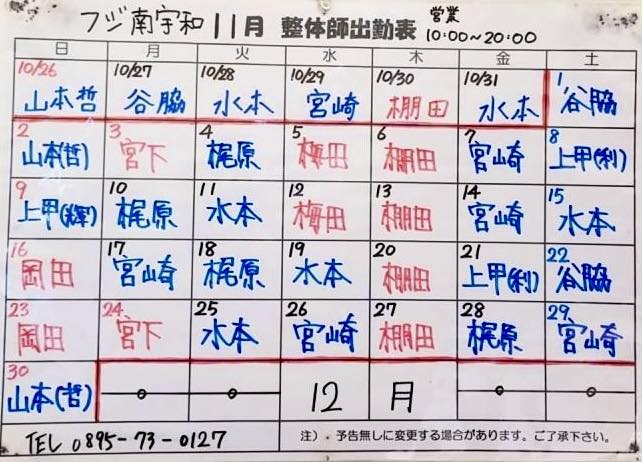 フジ南宇和 11月 整体師出勤表 営業 10:00~20:00
日 月 火 水 木 金 土
10/26 10/27 10/28 10/29 10/30 10/31 1
山本哲 谷脇 水本 宮崎 棚田 水本 谷脇
2 3 4 5 6 7 8
山本(哲) 宮下 梶原 梅田 棚田 宮崎 上甲(利)
9 10 11 12 13 14 15
上甲(輝) 梶原 水本 梅田 棚田 宮崎 水本
16 17 18 19 20 21 22
岡田 宮崎 梶原 水本 棚田 上甲(利) 谷脇
23 24 25 26 27 28 29
岡田 宮下 水本 宮崎 棚田 梶原 宮崎
30
山本(哲) 12 月
TEL 0895-73-0127 注)・予告無しに変更する場合があります。ご了承下さい。